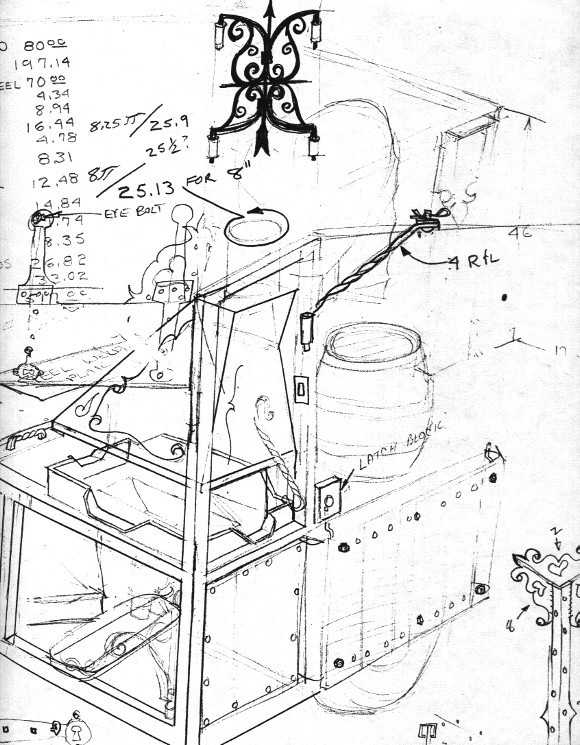 80 00
197.14
EEL 70 00
4.34
8.94
16.44
4.78
8.31
12.48
14.84
.74
8.35
26.82
33.02
8.25 π / 25.9
25½?
8 π /
25.13 FOR 8"
EYE BOLT
46
4 R&L
17
LATCH BLOCK
2
8